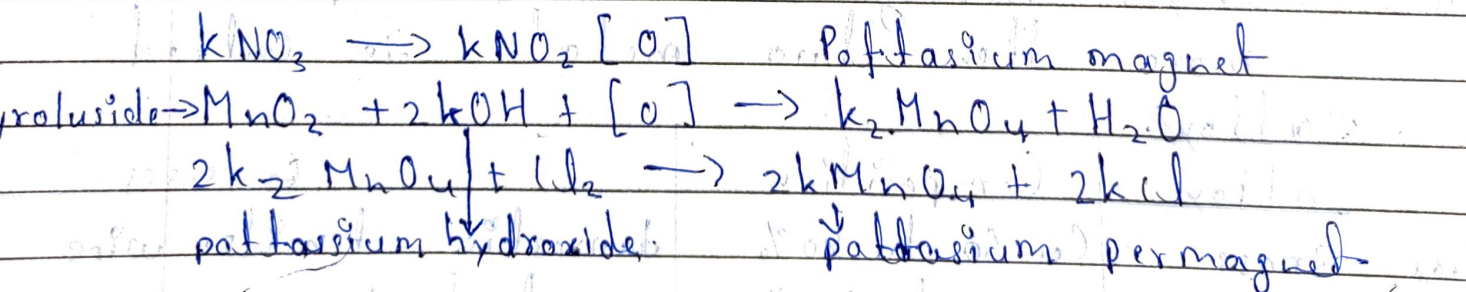 kNO₃ → kNO₂ [O] Pottasium magnet
yroluside→MnO₂ + 2kOH + [O] → k₂MnO₄ + H₂O
2k₂ MnO₄ + Cl₂ → 2kMnO₄ + 2kCl
pottassium hydroxide. pattasium permagnet